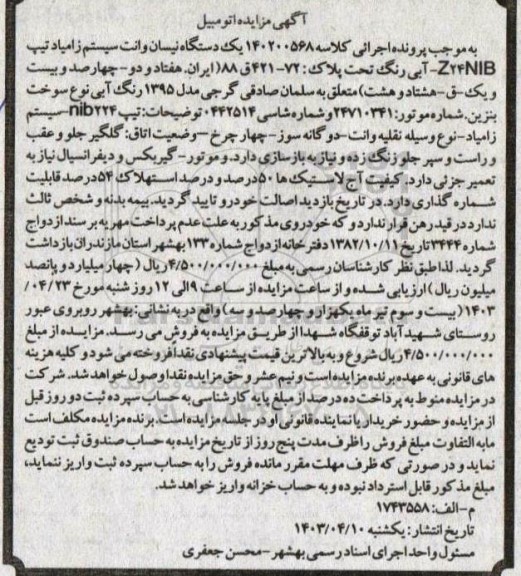 آگهی مزایده اتومبیل
به موجب پرونده اجرائی کلاسه ۱۴۰۲۰۰۵۶۸ یک دستگاه نیسان وانت سیستم زامیاد تیپ
Z۲۴NIB- آبی رنگ تحت پلاک: ۷۲-۴۲۱ق۸۸( ایران. هفتاد و دو- چهارصد و بیست
و یک-ق-هشتاد و هشت) متعلق به سلمان صادقی گرجی مدل ۱۳۹۵ رنگ آبی نوع سوخت
بنزین. شماره موتور: ۲۴۷۱۰۳۴۱ و شماره شاسی ۰۴۴۲۵۱۴ توضیحات: تیپ nib۲۲۴-سیستم
زامیاد-نوع وسیله نقلیه وانت- دو گانه سوز- چهار چرخ -وضعیت اتاق: گلگیر جلو و عقب
و راست و سپر جلو زنگ زده و نیاز به بازسازی دارد. و موتور- گیربکس و دیفرانسیال نیاز به
تعمیر جزئی دارد. کیفیت آج لاستیک ها ۵۰ درصد و درصد استهلاک ۵۴ درصد قابلیت
شماره گذاری دارد. در تاریخ بازدید اصالت خودرو تایید گردید. بیمه بدنه و شخص ثالث
ندارد در قید رهن قرار ندارد و که خودروی مذکور به علت عدم پرداخت مهریه بر سند ازدواج
شماره ۳۴۴۴ تاریخ ۱۳۸۲/۱۰/۱۱ دفترخانه ازدواج شماره ۱۳۳ بهشهر استان مازندران بازداشت
گردید. لذا طبق نظر کارشناسان رسمی به مبلغ ۴/۵۰۰/۰۰۰/۰۰۰ ریال (چهار میلیارد و پانصد
میلیون ریال) ارزیابی شده و از ساعت مزایده از ساعت ۹ الی ۱۲ روز شنبه مورخ ۰۴/۲۳/
۱۴۰۳ (بیست و سوم تیر ماه یکهزار و چهارصد و سه) واقع در به نشانی: بهشهر روبروی عبور
روستای شهیدآباد توقفگاه شهدا از طریق مزایده به فروش می رسد. مزایده از مبلغ
۴/۵۰۰/۰۰۰/۰۰۰ ریال شروع و به بالاترین قیمت پیشنهادی نقداً فروخته می شود و کلیه هزینه
های قانونی به عهده برنده مزایده است و نیم عشر و حق مزایده نقدا وصول خواهد شد. شرکت
در مزایده منوط به پرداخت ده درصد از مبلغ پایه کارشناسی به حساب سپرده ثبت دو روز قبل
از مزایده و حضور خریدار یا نماینده قانونی او در جلسه مزایده است. برنده مزایده مکلف است
مابه التفاوت مبلغ فروش را ظرف مدت پنج روز از تاریخ مزایده به حساب صندوق ثبت تودیع
نماید و در صورتی که ظرف مهلت مقرر مانده فروش را به حساب سپرده ثبت واریز ننماید،
مبلغ مذکور قابل استرداد نبوده و به حساب خزانه واریز خواهد شد.
م-الف: ۱۷۴۳۵۵۸
تاریخ انتشار: یکشنبه ۱۴۰۳/۰۴/۱۰
مسئول واحد اجرای اسناد رسمی بهشهر- محسن جعفری